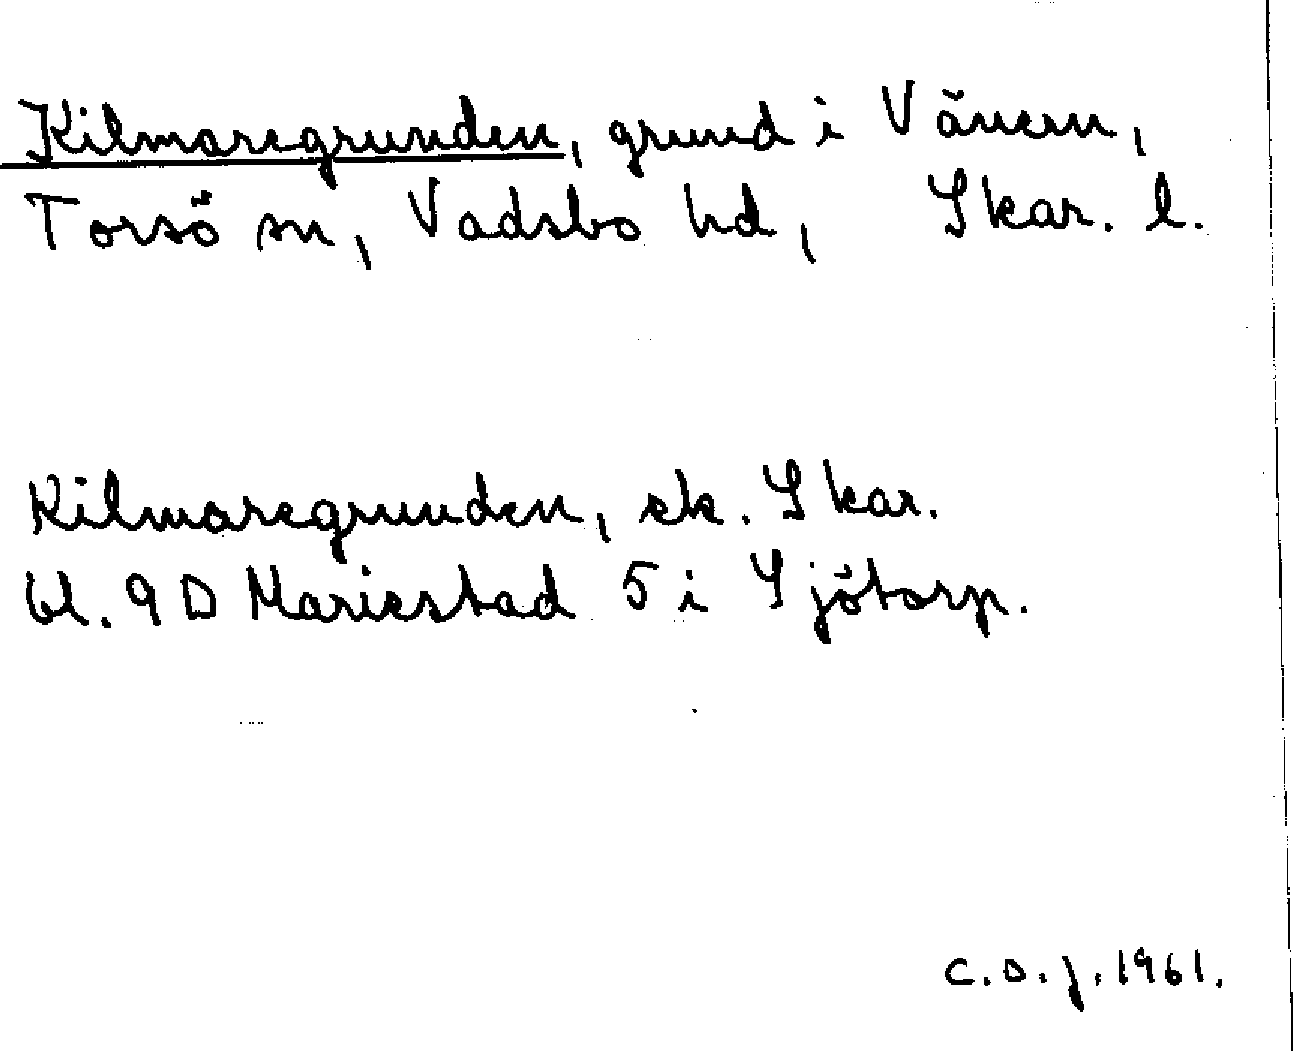 Kilmaregrunden, grund i Vänern,
Torsö sn, Vadsbo hd, Skar. l.
Kilmaregrunden, ek. Skar.
bl. 9 D Mariestad 5 i Sjötorp.
C. D. J. 1961.